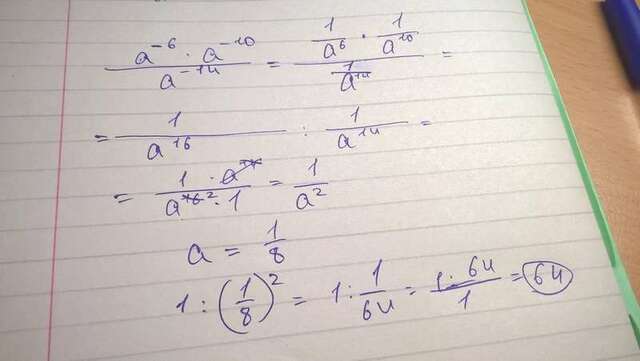 a⁻⁶ · a⁻¹⁰ / a⁻¹⁴ = (1/a⁶ · 1/a¹⁰) / (1/a¹⁴) =
= 1/a¹⁶ : 1/a¹⁴ =
= 1 · a¹⁴ / a¹⁶ ² · 1 = 1/a²
a = 1/8
1 : (1/8)² = 1 : 1/64 = 1 · 64 / 1 = 64